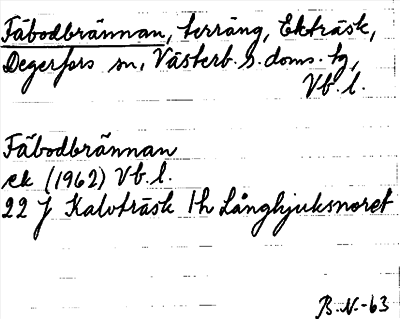 Fäbodbrännan, terräng, Ekträsk,
Degerfors sn, Västerb. s. doms. tg,
Vb. l.
Fäbodbrännan
ek (1962) Vb. l.
22 J Kalvträsk 1h Långhjuksnoret
B.N.-63